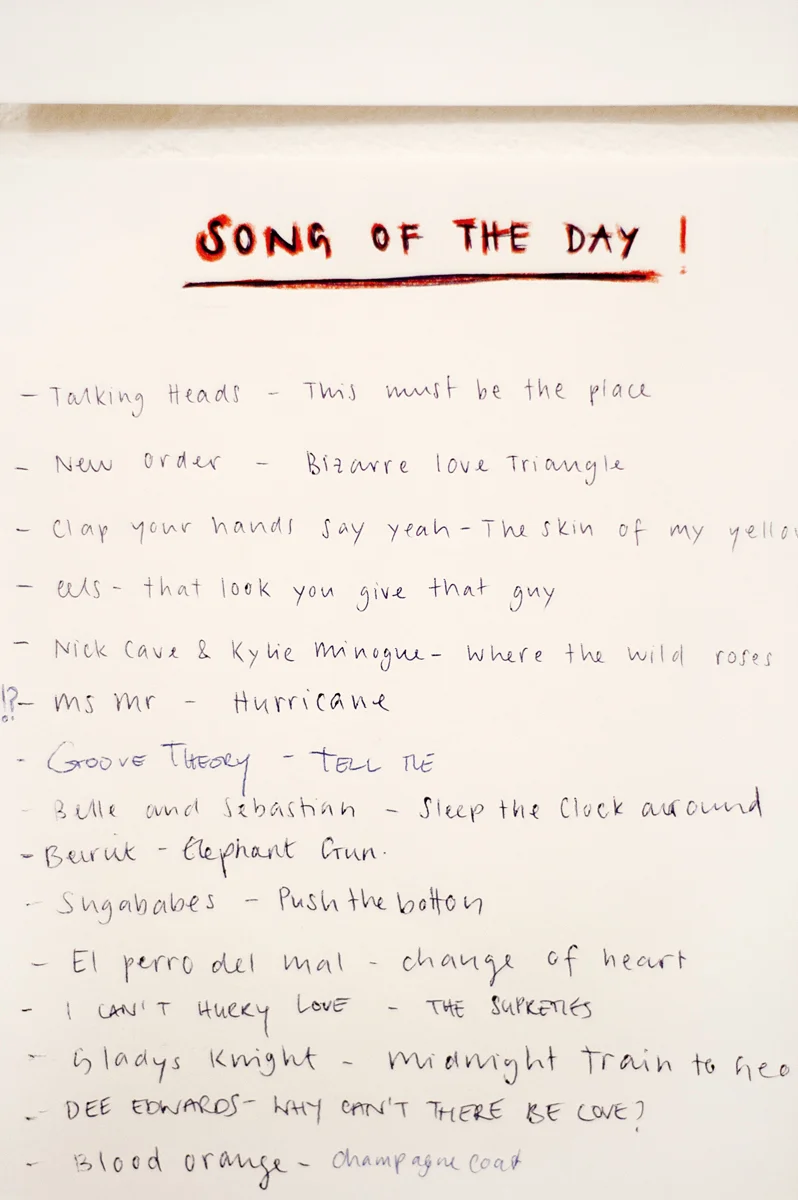 SONG OF THE DAY !
- Talking Heads - This must be the place
- New order - Bizarre love Triangle
- Clap your hands say yeah - The skin of my yello
- eels - that look you give that guy
- Nick Cave & Kylie minogue - Where the wild roses
!?- ms mr - Hurricane
- GROOVE THEORY - TELL ME
- Belle and Sebastian - Sleep the Clock arround
- Beirut - Elephant Gun.
- Sugababes - Push the botton
- El perro del mal - change of heart
- I CAN'T HURRY LOVE - THE SUPREMES
- Gladys Knight - Midnight Train to Geo
- DEE EDWARDS - WHY CAN'T THERE BE LOVE?
- Blood orange - Champagne coat